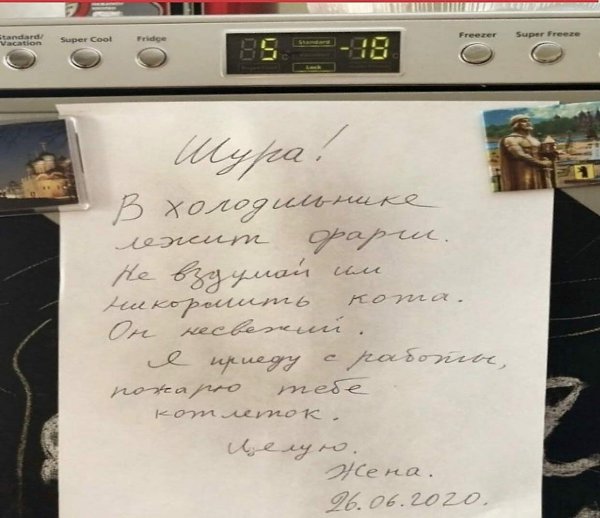 Standard/ Vacation
Super Cool
Fridge
5 °C Standard -18 °C
Lock
Freezer
Super Freeze
Шура!
В холодильнике
лежит фарш.
Не вздумай им
накормить кота.
Он несвежий.
Я приеду с работы,
пожарю тебе
котлеток.
Целую.
Жена.
26.06.2020.